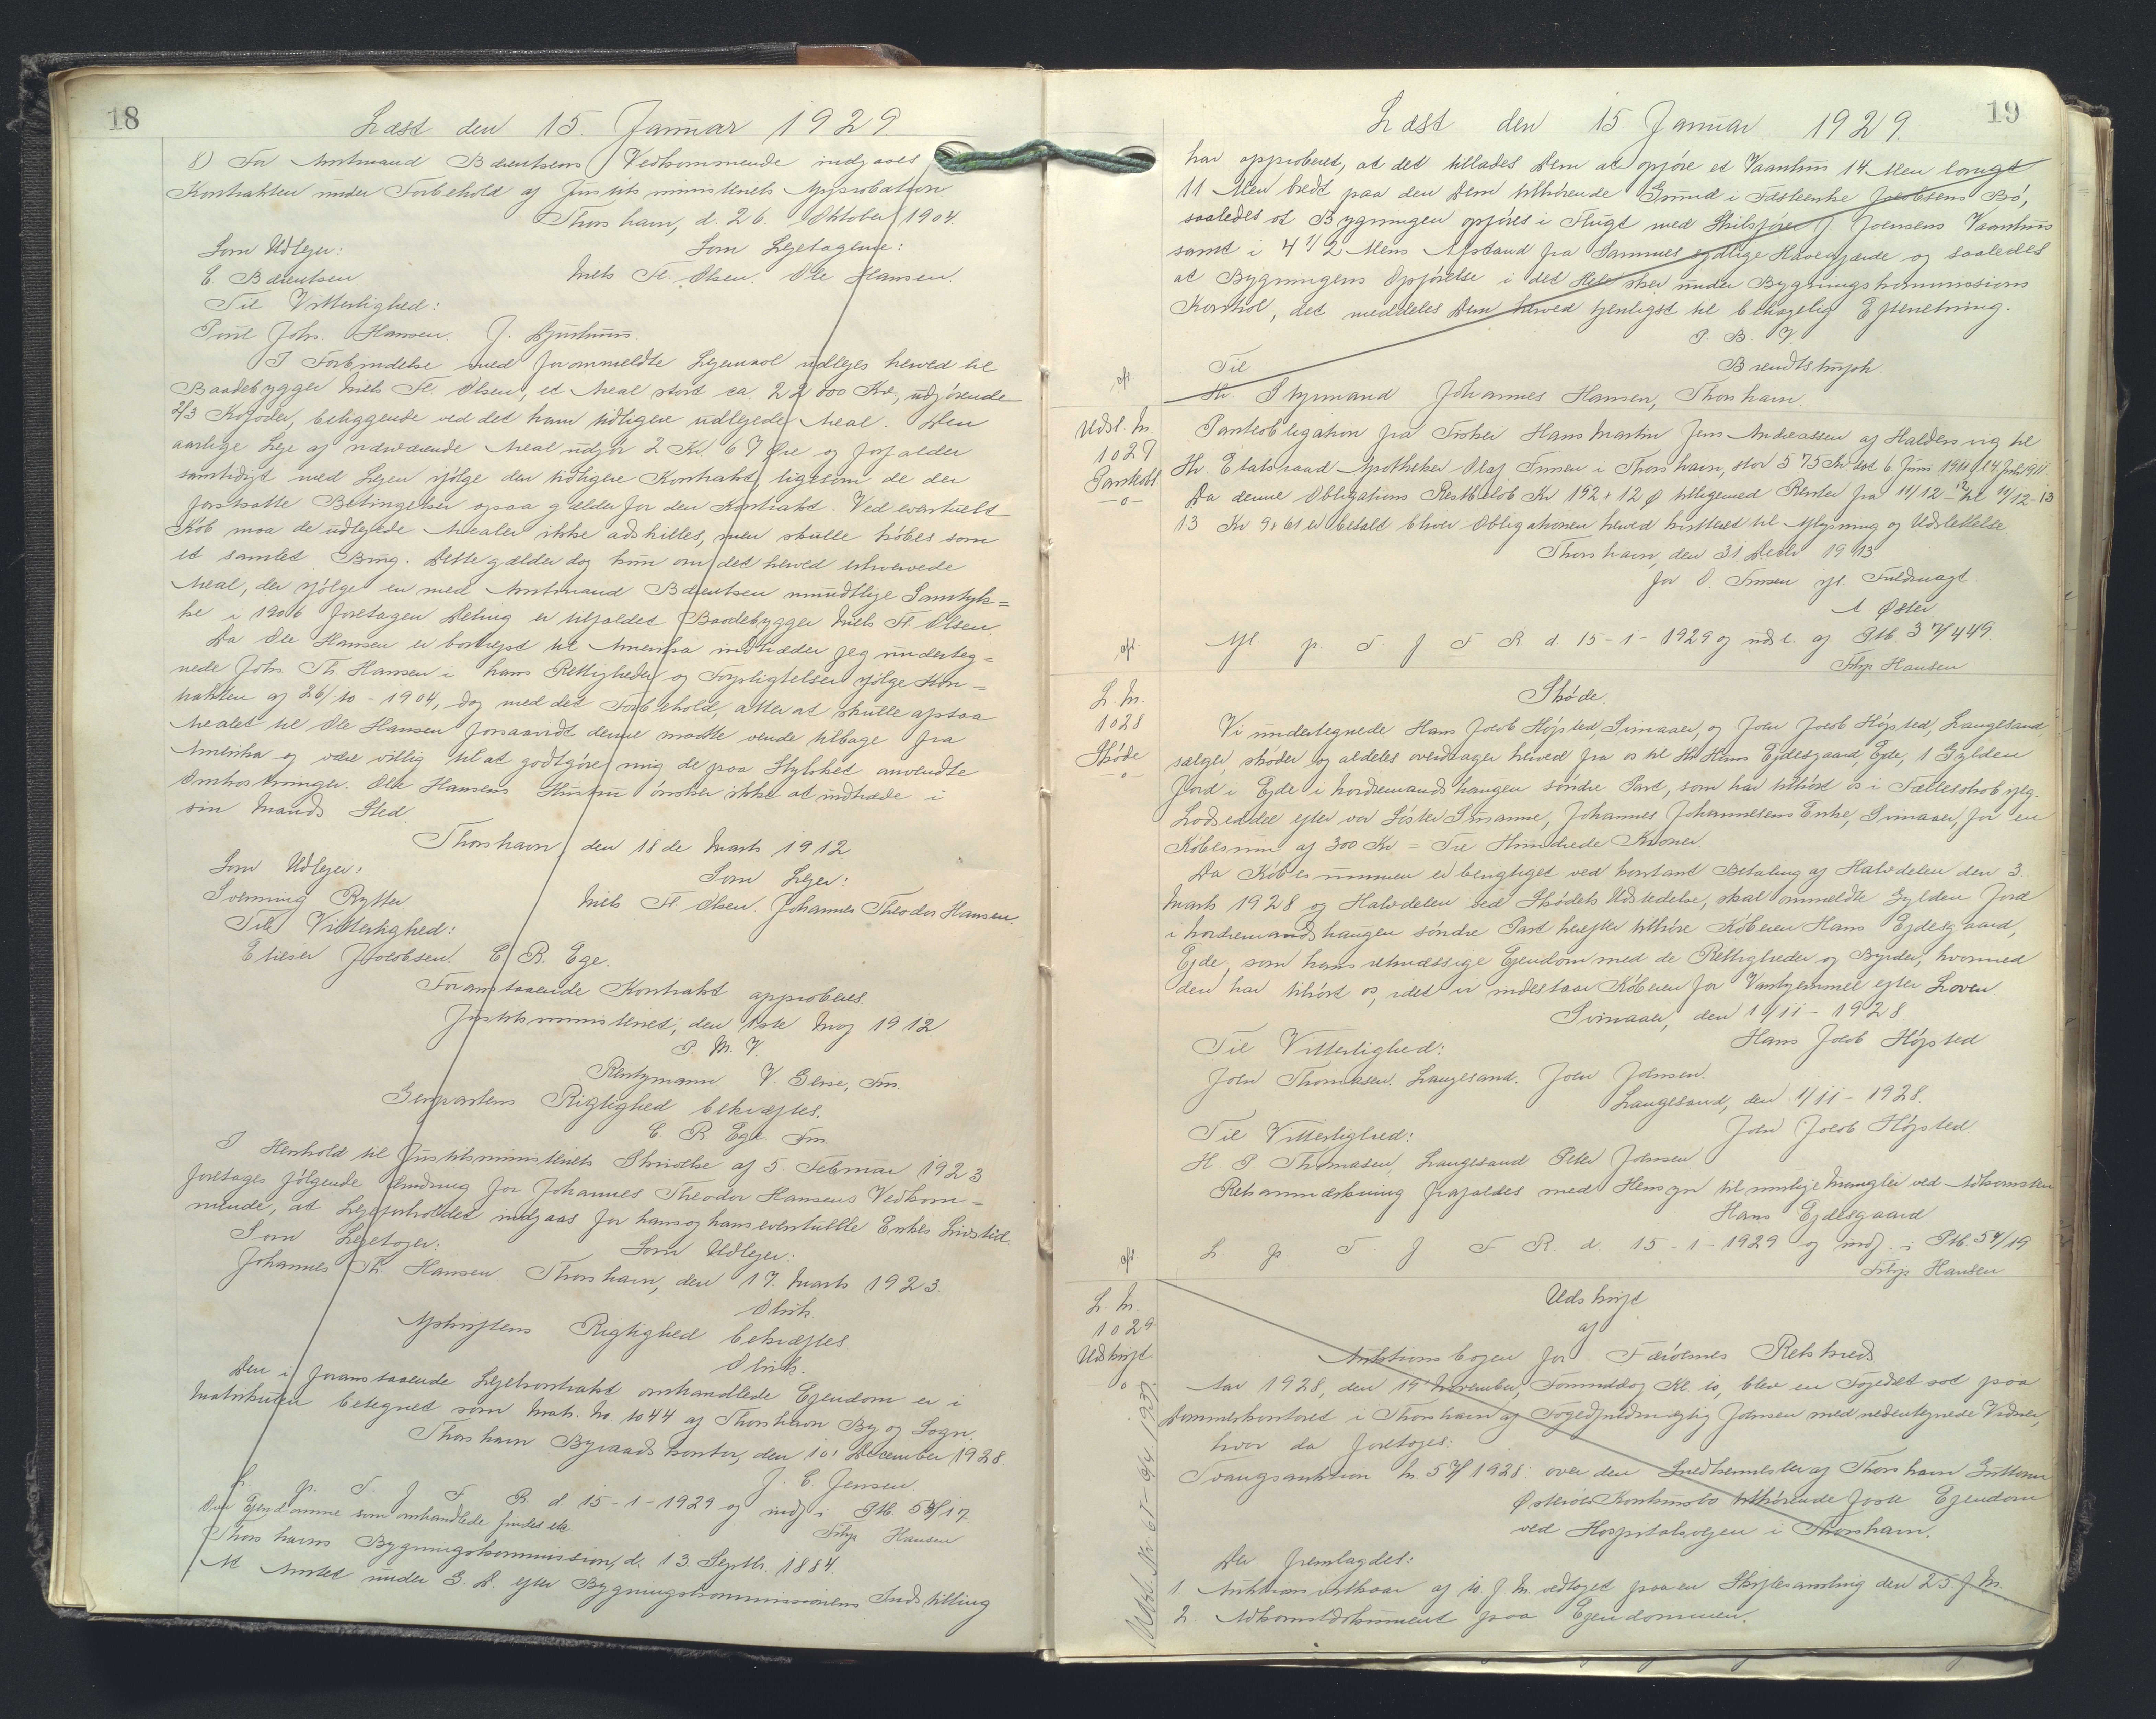 18
Læst den 15. Januar 1929
8) For Amtmand Bærentsens Vedkommende indgaaes
Kontrakten under Forbehold af Justitsministeriets Approbation.
Thorshavn, d. 26. Oktober 1904
Som Udlejer: Som Lejetagerne:
C Bærentsen Niels Fl. Olsen. Ole Hansen.
Til Vitterlighed:
Poul Johs. Hansen. J. Djurhuus.
I Forbindelse med forommeldte Lejemaal udlejes herved til
Baadebygger Niels Fl. Olsen, et Areal stort ca. 22 800 Kv, udgørende
2/3 Kofoder, beliggende ved det ham tidligere udlejede Areal. Den
aarlige Leje af nærværende Areal udgør 2 Kr. 67 Øre og forfalder
samtidigt med Lejen ifølge den tidligere Kontrakt, ligesom de der
forskratte Betingelser ogsaa gælder for den Kontrakt. Ved eventuelt
Køb maa de udlejede Arealer ikke adskilles, men skulle købes som
et samlet Brug. Dette gælder dog kun om det herved erhvervede
Areal, der ifølge en med Amtmand Bærentsen mundtlige Samtyk=
ke i 1906 foretagen Deling er tilfaldet Baadebygger Niels Fl. Olsen.
Da Ole Hansen er bortrejst til Amerika indtræder jeg underteg=
nede Johs. Th. Hansen i hans Rettigheder og Forpligtelser ifølge Kon=
trakten af 26/10 - 1904, dog med det Forbehold, atter at skulle afstaa
Arealet til Ole Hansen forsaavidt denne maatte vende tilbage fra
Amerika og være villig til at godtgøre mig de paa Stykket anvendte
Omkostninger. Ole Hansens Hustru ønsker ikke at indtræde i
sin Mands Sted.
Thorshavn, den 18de Marts 1912
Som Udlejer: Som Lejer:
Svenning Rytter Niels Fl Olsen. Johannes Theodor Hansen.
Til Vitterlighed:
Elieser Jacobsen. C. R. Ege.
Foranstaaende Kontrakt approberes
Justitsministeriet, den 1ste Maj 1912.
P. M. V.
Rentzmann V. Giese, Fm.
Genpartens Rigtighed bekræftes.
C. R. Ege Fm.
I Henhold til Justitsministeriets Skrivelse af 5. Februar 1923
foretages følgende Ændring for Johannes Theodor Hansens Vedkom=
mende, at Lejeforholdet indgaas for hans og hans eventuelle Enkes Livstid.
Som Lejetager: Som Udlejer:
Johannes Th. Hansen Thorshavn, den 17. Marts 1923.
Olrik.
Afskriftens Rigtighed bekræftes.
Olrik.
Den i foranstaaende Lejekontrakt omhandlede Ejendom er i
Matrikulen betegnet som Matr. No. 1044 af Thorshavn By og Sogn.
Thorshavn Byraads kontor, den 10' December 1928.
J. C. Jensen.
L. p. T. f. F. R. d 15-1-1929 og indf. i Ptb. 57/17
Den Ejendomme som omhandlede findes ikke
Filip Hansen
Thorshavns Bygningskommission, d. 13. Septbr. 1884.
At Amtet under G. D. efter Bygningskommissionens Indstilling
19
Læst den 15 Januar 1929.
har approberet, at det tillades Dem at opføre et Vaanhus 14 Alen langt
11 Alen bredt paa den Dem tilhørende Grund i Fæsteenke Jacobsens Bø,
saaledes at Bygningen opføres i Flugt med Skibsfører J. Joensens Vaanhus
samt i 4 1/2 Alens Afstand fra Sammes sydlige Havegjærde og saaledes
at Bygningens Opførelse i det Hele sker under Bygningskommissions
Kontrol, det meddeles Dem herved tjenligst til behagelig Efterretning.
P. B. V.
Til Brendtstrup
Hr. Styrmand Johannes Hansen, Thorshavn.
Udsl. N.
1027
Pantobl
-o-
Pantobligation fra Fisker Hans Martin Jens Andreassen af Haldersvig til
Hr. Etatsraad Apotheker Olaf Finsen i Thorshavn, stor 575 Kr dat 6 Juni 1911
Da denne Obligations Restbeløb Kr 192 : 12 Ø tilligemed Renter fra 11/12 - 12 til 11/12-13
13 Kr 9 : 61 er betalt bliver Obligationen herved kvitteret til Aflysning og Udslettelse.
Thorshavn, den 31 Decbr 1913
for O. Finsen ifl. Fuldmagt
A Øster
Afl p. T. f F R d 15-1-1929 og udsl. af Ptb. 37/449.
Filip Hansen
L. N.
1028
Skøde
-o-
Skøde.
Vi undertegnede Hans Jacob Højsted, Svinaaer, og John Jacob Højsted, Langesand
sælger, skøder og aldeles overdrager herved fra os til Hr Hans Ejdesgaard, Ejde, 1 Gylden
Jord i Ejde i Nordremandshaugen søndre Part, som har tilhørt os i Fællesskab iflg.
Lodseddel efter vor Søster Susanne, Johannes Johannesens Enke, Svinaaer, for en
Købesum af 300 Kr. = Tre Hundrede Kroner.
Da Købesummen er berigtiget ved kontant Betaling af Halvdelen den 3.
Marts 1928 og Halvdelen ved Skødets Udstedelse, skal ommeldte Gylden Jord
i Nordremandshaugen søndre Part herefter tilhøre Køberen Hans Ejdesgaard,
Ejde, som hans retmæssige Ejendom med de Rettigheder og Byrder, hvormed
den har tilhørt os, idet vi indestaar Køberen for Vanhjemmel efter Loven
Svinaaer, den 1/11 - 1928
Til Vitterlighed: Hans Jacob Højsted
John Thomasen. Langesand. John Johnsen.
Langesand, den 1/11 - 1928.
Til Vitterlighed: John Jacob Højsted.
H. P. Thomasen, Langesand Peter Johnsen
Retsanmærkning frafaldes med Hensyn til mulige Mangler ved Adkomsten
Hans Ejdesgaard
L p T f F R d. 15-1-1929 og indf. i Ptb. 57/19
Filip Hansen
L. N.
1029
Udskrift
o
Udskrift
af
Auktionsbogen for Færøernes Retskreds
Aar 1928, den 19' November, Formiddag Kl. 10, blev en Fogedret sat paa
Dommerkontoret i Thorshavn af Fogedfuldmægtig Johnsen med nedentegnede Vidner,
hvor da foretoges:
Tvangsauktion N. 57/1928: over den Snedkermester af Thorshavn Guttorm
Østerøs Konkursbo tilhørende faste Ejendom
ved Hospitalsvejen i Thorshavn.
Der fremlagdes:
1. Auktionsvilkaar af 10. f. M. vedtaget paa en Skiftesamling den 23 f. M.
2. Adkomstdokument paa Ejendommen.